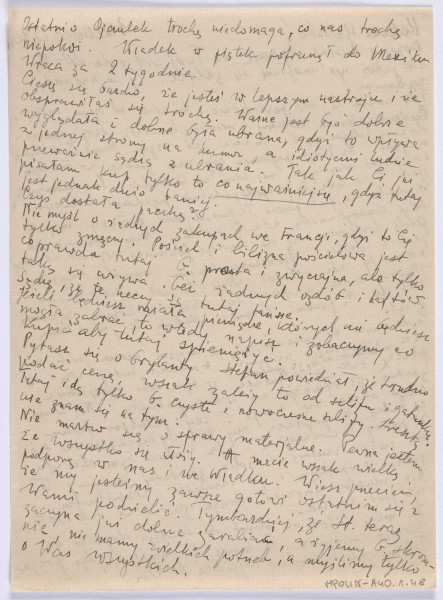 Ostatnio Ojczulek trochę niedomaga, co nas trochę
niepokoi. Władek w piątek pofrunął do Meksiku
Wraca za 2 tygodnie.
Cieszę się bardzo, że jesteś w lepszym nastroju i że
obsprawiłaś się trochę. Ważne jest być dobrze
wyglądała i dobrze była ubrana, gdyż to wpływa
z jednej strony na humor, a idiotyczni ludzie
przeważnie sądzą z ubrania. Tak jak Ci już
pisałam kup tylko to co najważniejsze, gdyż tutaj
jest jednak dużo taniej.
Czyś dostała paczkę?
Nie myśl o żadnych zakupach we Francji, gdyż to Cię
tylko zmęczy. Pościel i bielizna pościelowa jest
coprawda tutaj b. prosta i zwyczajna, ale tylko
taką się używa. Bez żadnych ozdób i haftów
Sądzę, że te rzeczy są tutaj tańsze.
Jeśli będziesz miała pieniądze, których nie będziesz
mogła zabrać, to wtedy napisz i zobaczymy co
kupić aby tutaj spieniężyć.
Pytasz się o brylanty. Stefan powiedział, że trudno
podać cenę, wszak zależy to od szlifu i gatunku.
Tutaj idą tylko b. czyste i nowoczesne szlify. Zresztą
nie znam się na tym.
Nie martw się o sprawy materialne. Pewna jestem
że wszystko się ułoży. Macie wszak wielką
podporę w nas i we Władku. Wiesz przecież,
że my jesteśmy zawsze gotowi ostatnim się z
Wami podzielić. Tymbardziej, że St. teraz
zaczyna już dobrze zarabiać, a żyjemy b. skrom-
nie, nie mamy wielkich potrzeb, a myślimy tylko
o Was wszystkich.
MPOLIN-A40.1.48